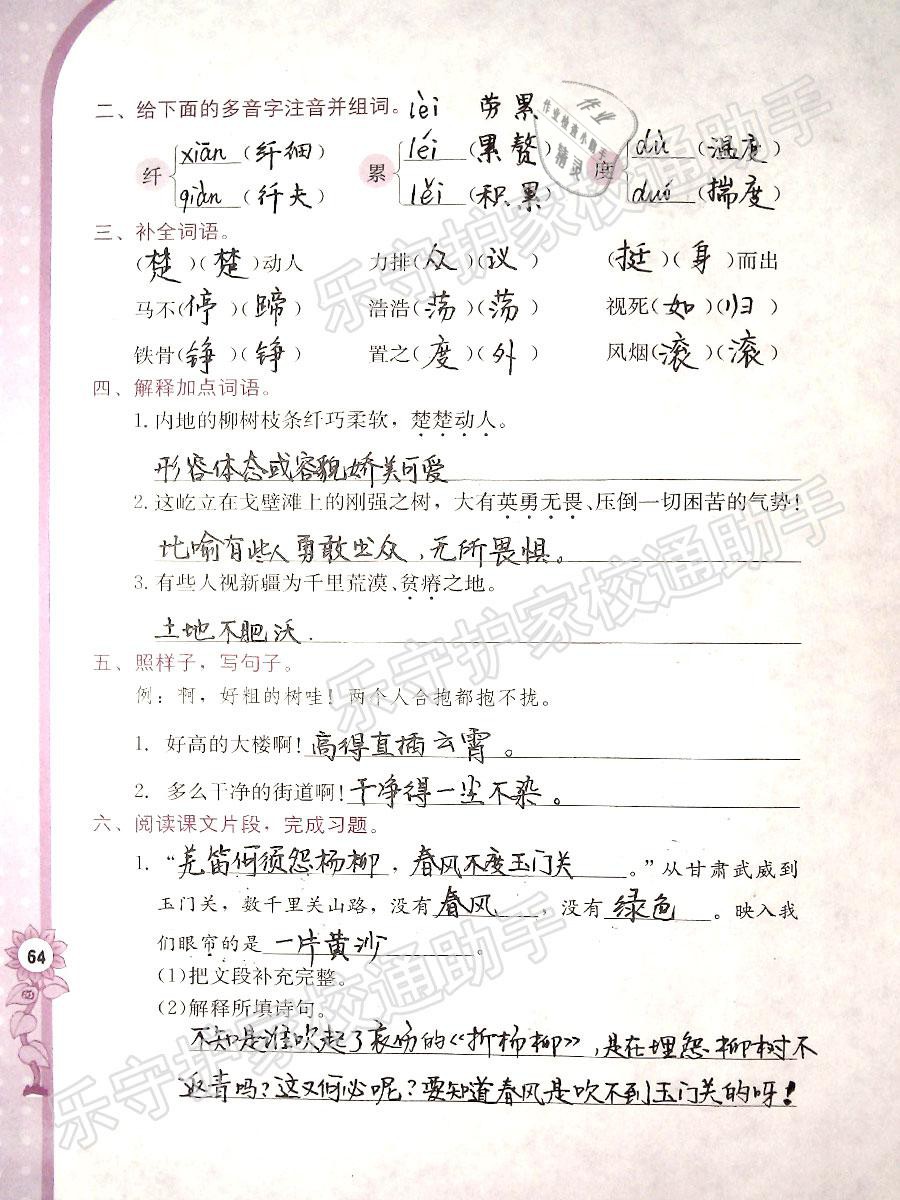 二、给下面的多音字注音并组词。lèi 劳累
纤 xiān (纤细) 累 léi (累赘) 度 dù (温度)
qiàn (纤夫) lěi (积累) duó (揣度)
三、补全词语。
(楚)(楚)动人 力排(众)(议) (挺)(身)而出
马不(停)(蹄) 浩浩(荡)(荡) 视死(如)(归)
铁骨(铮)(铮) 置之(度)(外) 风烟(滚)(滚)
四、解释加点词语。
1.内地的柳树枝条纤巧柔软,楚楚动人。
形容体态或容貌娇美可爱
2.这屹立在戈壁滩上的刚强之树,大有英勇无畏、压倒一切困苦的气势!
比喻有些人勇敢出众,无所畏惧。
3.有些人视新疆为千里荒漠、贫瘠之地。
土地不肥沃.
五、照样子,写句子。
例:啊,好粗的树哇!两个人合抱都抱不拢。
1. 好高的大楼啊!高得直插云霄。
2. 多么干净的街道啊!干净得一尘不染。
六、阅读课文片段,完成习题。
1. “羌笛何须怨杨柳,春风不度玉门关。”从甘肃武威到
玉门关,数千里关山路,没有春风,没有绿色。映入我
们眼帘的是一片黄沙
(1)把文段补充完整。
(2)解释所填诗句。
不知是谁吹起了哀伤的《折杨柳》,是在埋怨柳树不
返青吗?这又何必呢?要知道春风是吹不到玉门关的呀!
64
乐守护家校通助手
乐守护家校通助手
乐守护家校通助手
作业
作业检查小助手
精灵